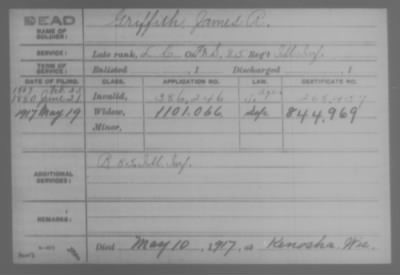 DEAD
NAME OF SOLDIER: Griffith, James R.
SERVICE: Late rank, L C Co F&S, 85 Reg't Ill Inf.
TERM OF SERVICE: Enlisted , 1 Discharged , 1
DATE OF FILING. CLASS. APPLICATION NO. LAW. CERTIFICATE NO.
1880 June 21 Invalid, 386,246
1917 May 19 Widow, 1101.066 844,969
Minor,
ADDITIONAL SERVICES: B 85 Ill Inf.
REMARKS:
Died May 10, 1917, at Kenosha, Wis.